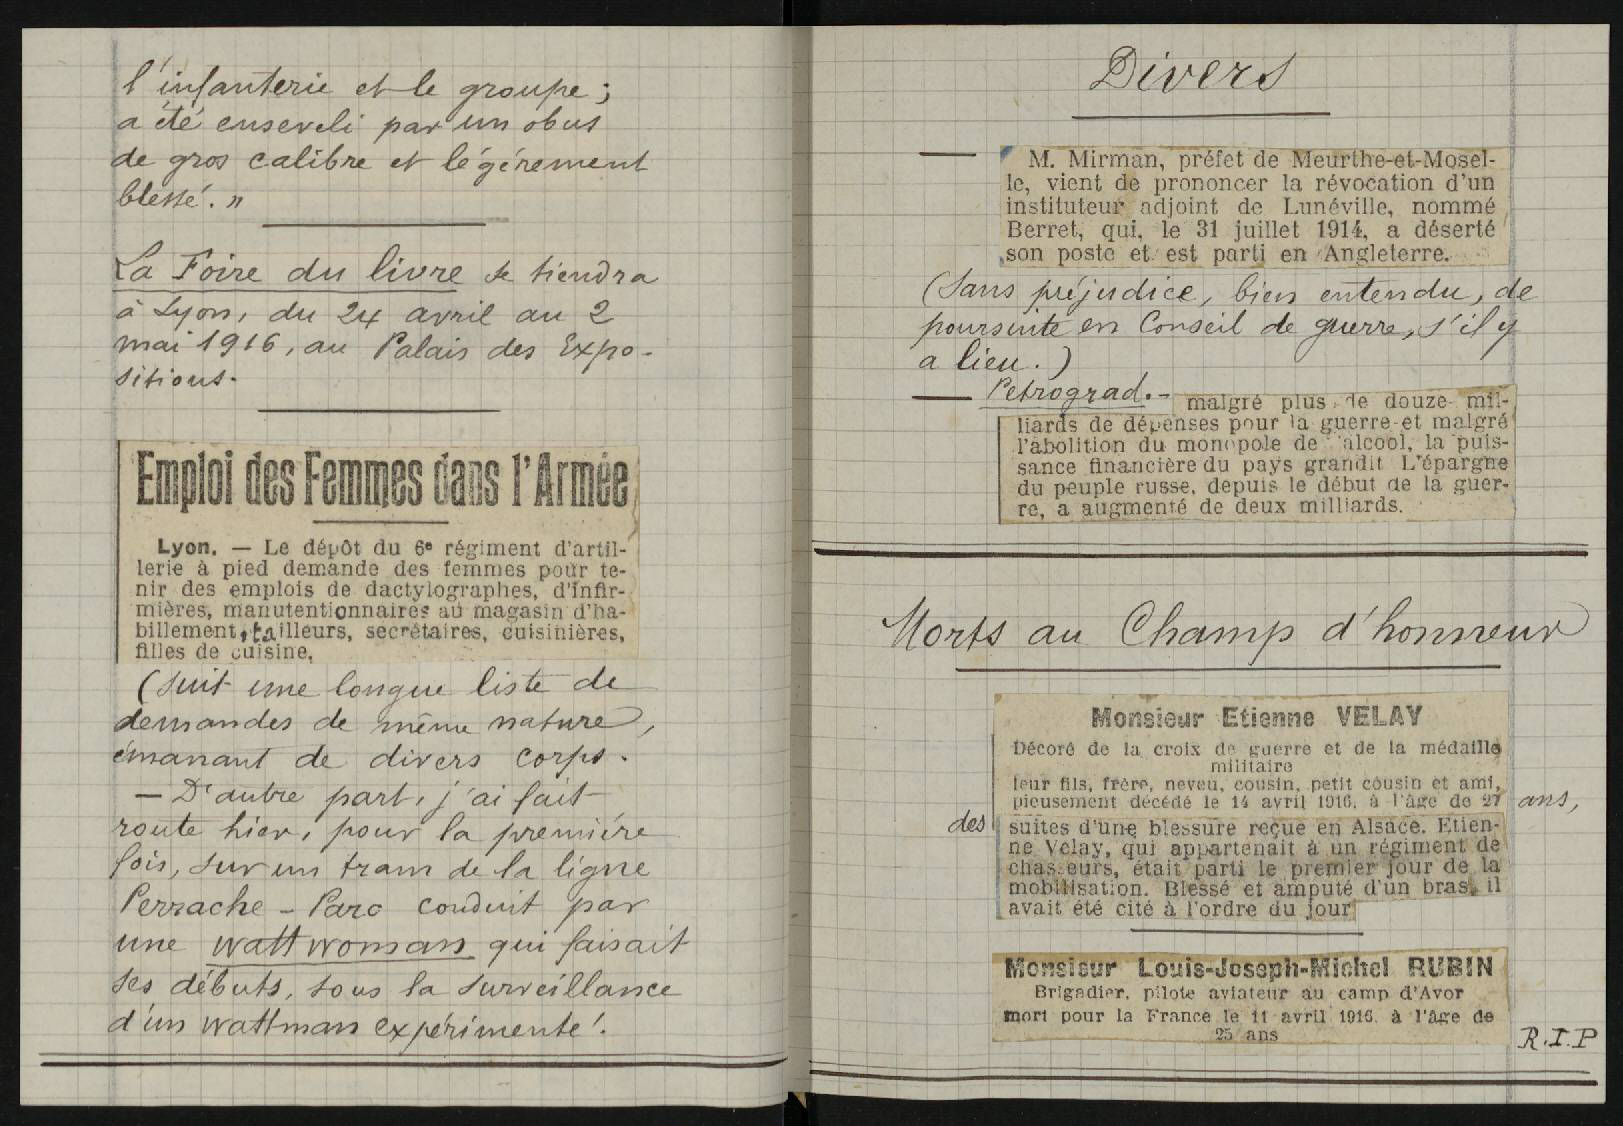 l'infanterie et le groupe ;
a été enseveli par un obus
de gros calibre et légèrement
blessé. »
La Foire du livre se tiendra
à Lyon, du 24 avril au 2
mai 1916, au Palais des Expo-
sitions.
Emploi des Femmes dans l'Armée
Lyon. — Le dépôt du 6e régiment d'artil-
lerie à pied demande des femmes pour te-
nir des emplois de dactylographes, d'infir-
mières, manutentionnaires au magasin d'ha-
billement, tailleurs, secrétaires, cuisinières,
filles de cuisine,
(Suit une longue liste de
demandes de même nature,
émanant de divers corps.
— D'autre part, j'ai fait
route hier, pour la première
fois, sur un tram de la ligne
Perrache - Parc conduit par
une wattwoman qui faisait
ses débuts, sous la surveillance
d'un wattman expérimenté.
Divers
— M. Mirman, préfet de Meurthe-et-Mosel-
le, vient de prononcer la révocation d'un
instituteur adjoint de Lunéville, nommé
Berret, qui, le 31 juillet 1914, a déserté
son poste et est parti en Angleterre.
(Sans préjudice, bien entendu, de
poursuite en Conseil de guerre, s'il y
a lieu.)
— Petrograd. - malgré plus de douze mil-
liards de dépenses pour la guerre et malgré
l'abolition du monopole de l'alcool, la puis-
sance financière du pays grandit L'épargne
du peuple russe, depuis le début de la guer-
re, a augmenté de deux milliards.
Morts au Champ d'honneur
Monsieur Etienne VELAY
Décoré de la croix de guerre et de la médaille
militaire
leur fils, frère, neveu, cousin, petit cousin et ami,
pieusement décédé le 14 avril 1916, à l'âge de 27 ans,
des suites d'une blessure reçue en Alsace. Etien-
ne Velay, qui appartenait à un régiment de
chasseurs, était parti le premier jour de la
mobilisation. Blessé et amputé d'un bras, il
avait été cité à l'ordre du jour
Monsieur Louis-Joseph-Michel RUBIN
Brigadier, pilote aviateur au camp d'Avor
mort pour la France le 11 avril 1916, à l'âge de
25 ans
R.I.P